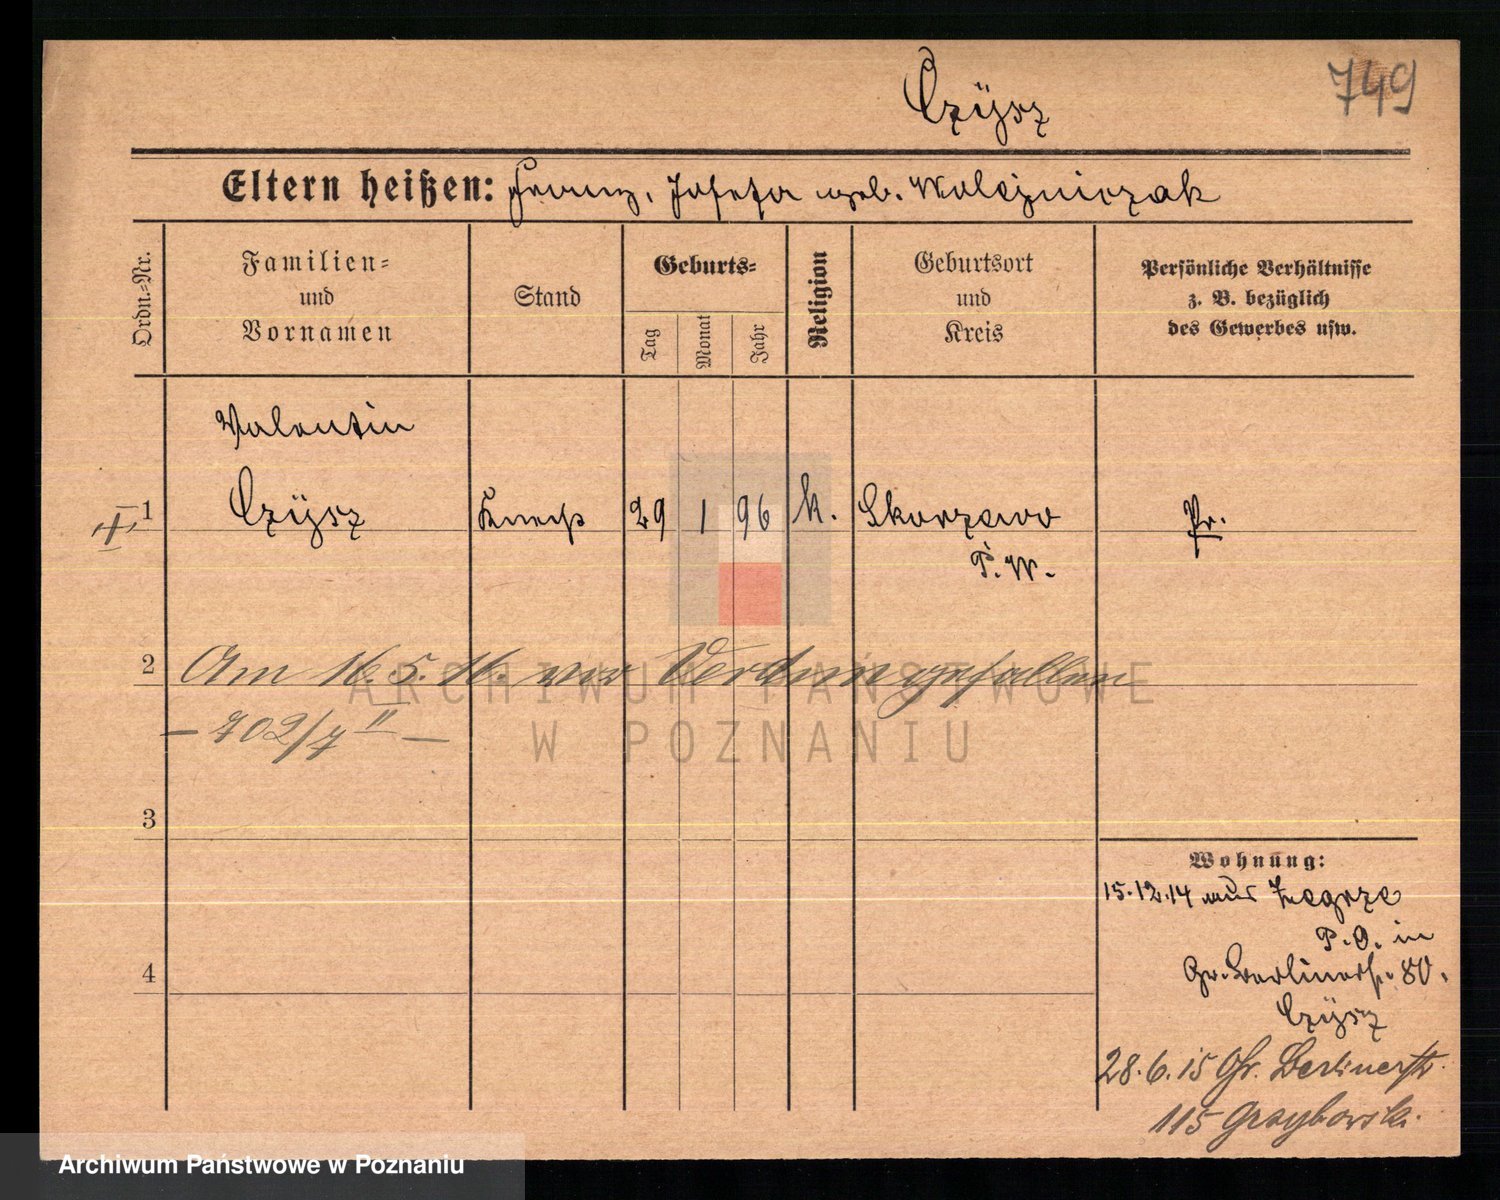 749
Czÿsz
Eltern heißen: Franz, Josefa geb. Woleÿniczak
Ordn.=Nr.
Familien=
und
Vornamen
Stand
Geburts=
Tag
Monat
Jahr
Religion
Geburtsort
und
Kreis
Persönliche Verhältnisse
z. B. bezüglich
des Gewerbes usw.
Valentin
1 Czÿsz Knecht 29 1 96 k. Skorzewo Pr.
P. W.
2 Am 16. 5. 16. vor Verdun gefallen
– 702/7 II –
3
4
Wohnung:
15.12.14 aus Zegrze
P. O. in
Gr. Berlinerstr. 80.
Czÿsz
28.6.15 Gr. Berlinerstr.
115 Grzybowski.
ARCHIWUM PAŃSTWOWE
W POZNANIU
Archiwum Państwowe w Poznaniu